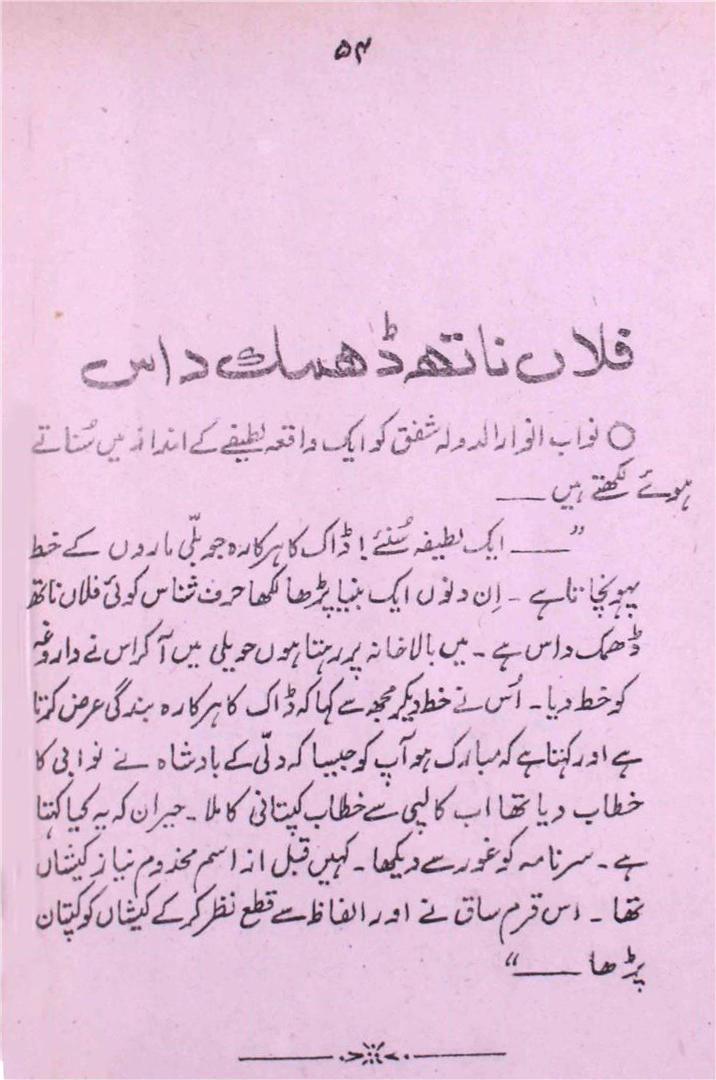 ۵۴
فلاں ناتھ ڈھمک داس
○ نواب انوار الدولہ شفق کو ایک واقعہ لطیفے کے انداز میں سُناتے
ہوئے لکھتے ہیں ——
” —— ایک لطیفہ سُنئے! ڈاک کا ہرکارہ جو بلّی ماروں کے خط
پہونچاتا ہے ۔ اِن دنوں ایک بنیا پڑھا لکھا حرف شناس کوئی فلاں ناتھ
ڈھمک داس ہے ۔ میں بالا خانہ پر رہتا ہوں حویلی میں آ کر اس نے داروغہ
کو خط دیا ۔ اُس نے خط دیکر مجھ سے کہا کہ ڈاک کا ہرکارہ بندگی عرض کرتا
ہے اور کہتا ہے کہ مبارک ہو آپ کو جیسا کہ دلّی کے بادشاہ نے نوابی کا
خطاب دیا تھا اب کالپی سے خطاب کپتانی کا ملا ۔ حیران کہ یہ کیا کہتا
ہے ۔ سرنامہ کو غور سے دیکھا ۔ کہیں قبل از اسم مخدوم نیاز کیشاں
تھا ۔ اس قرم ساق نے اور الفاظ سے قطع نظر کر کے کیشاں کو کپتان
پڑھا —— “